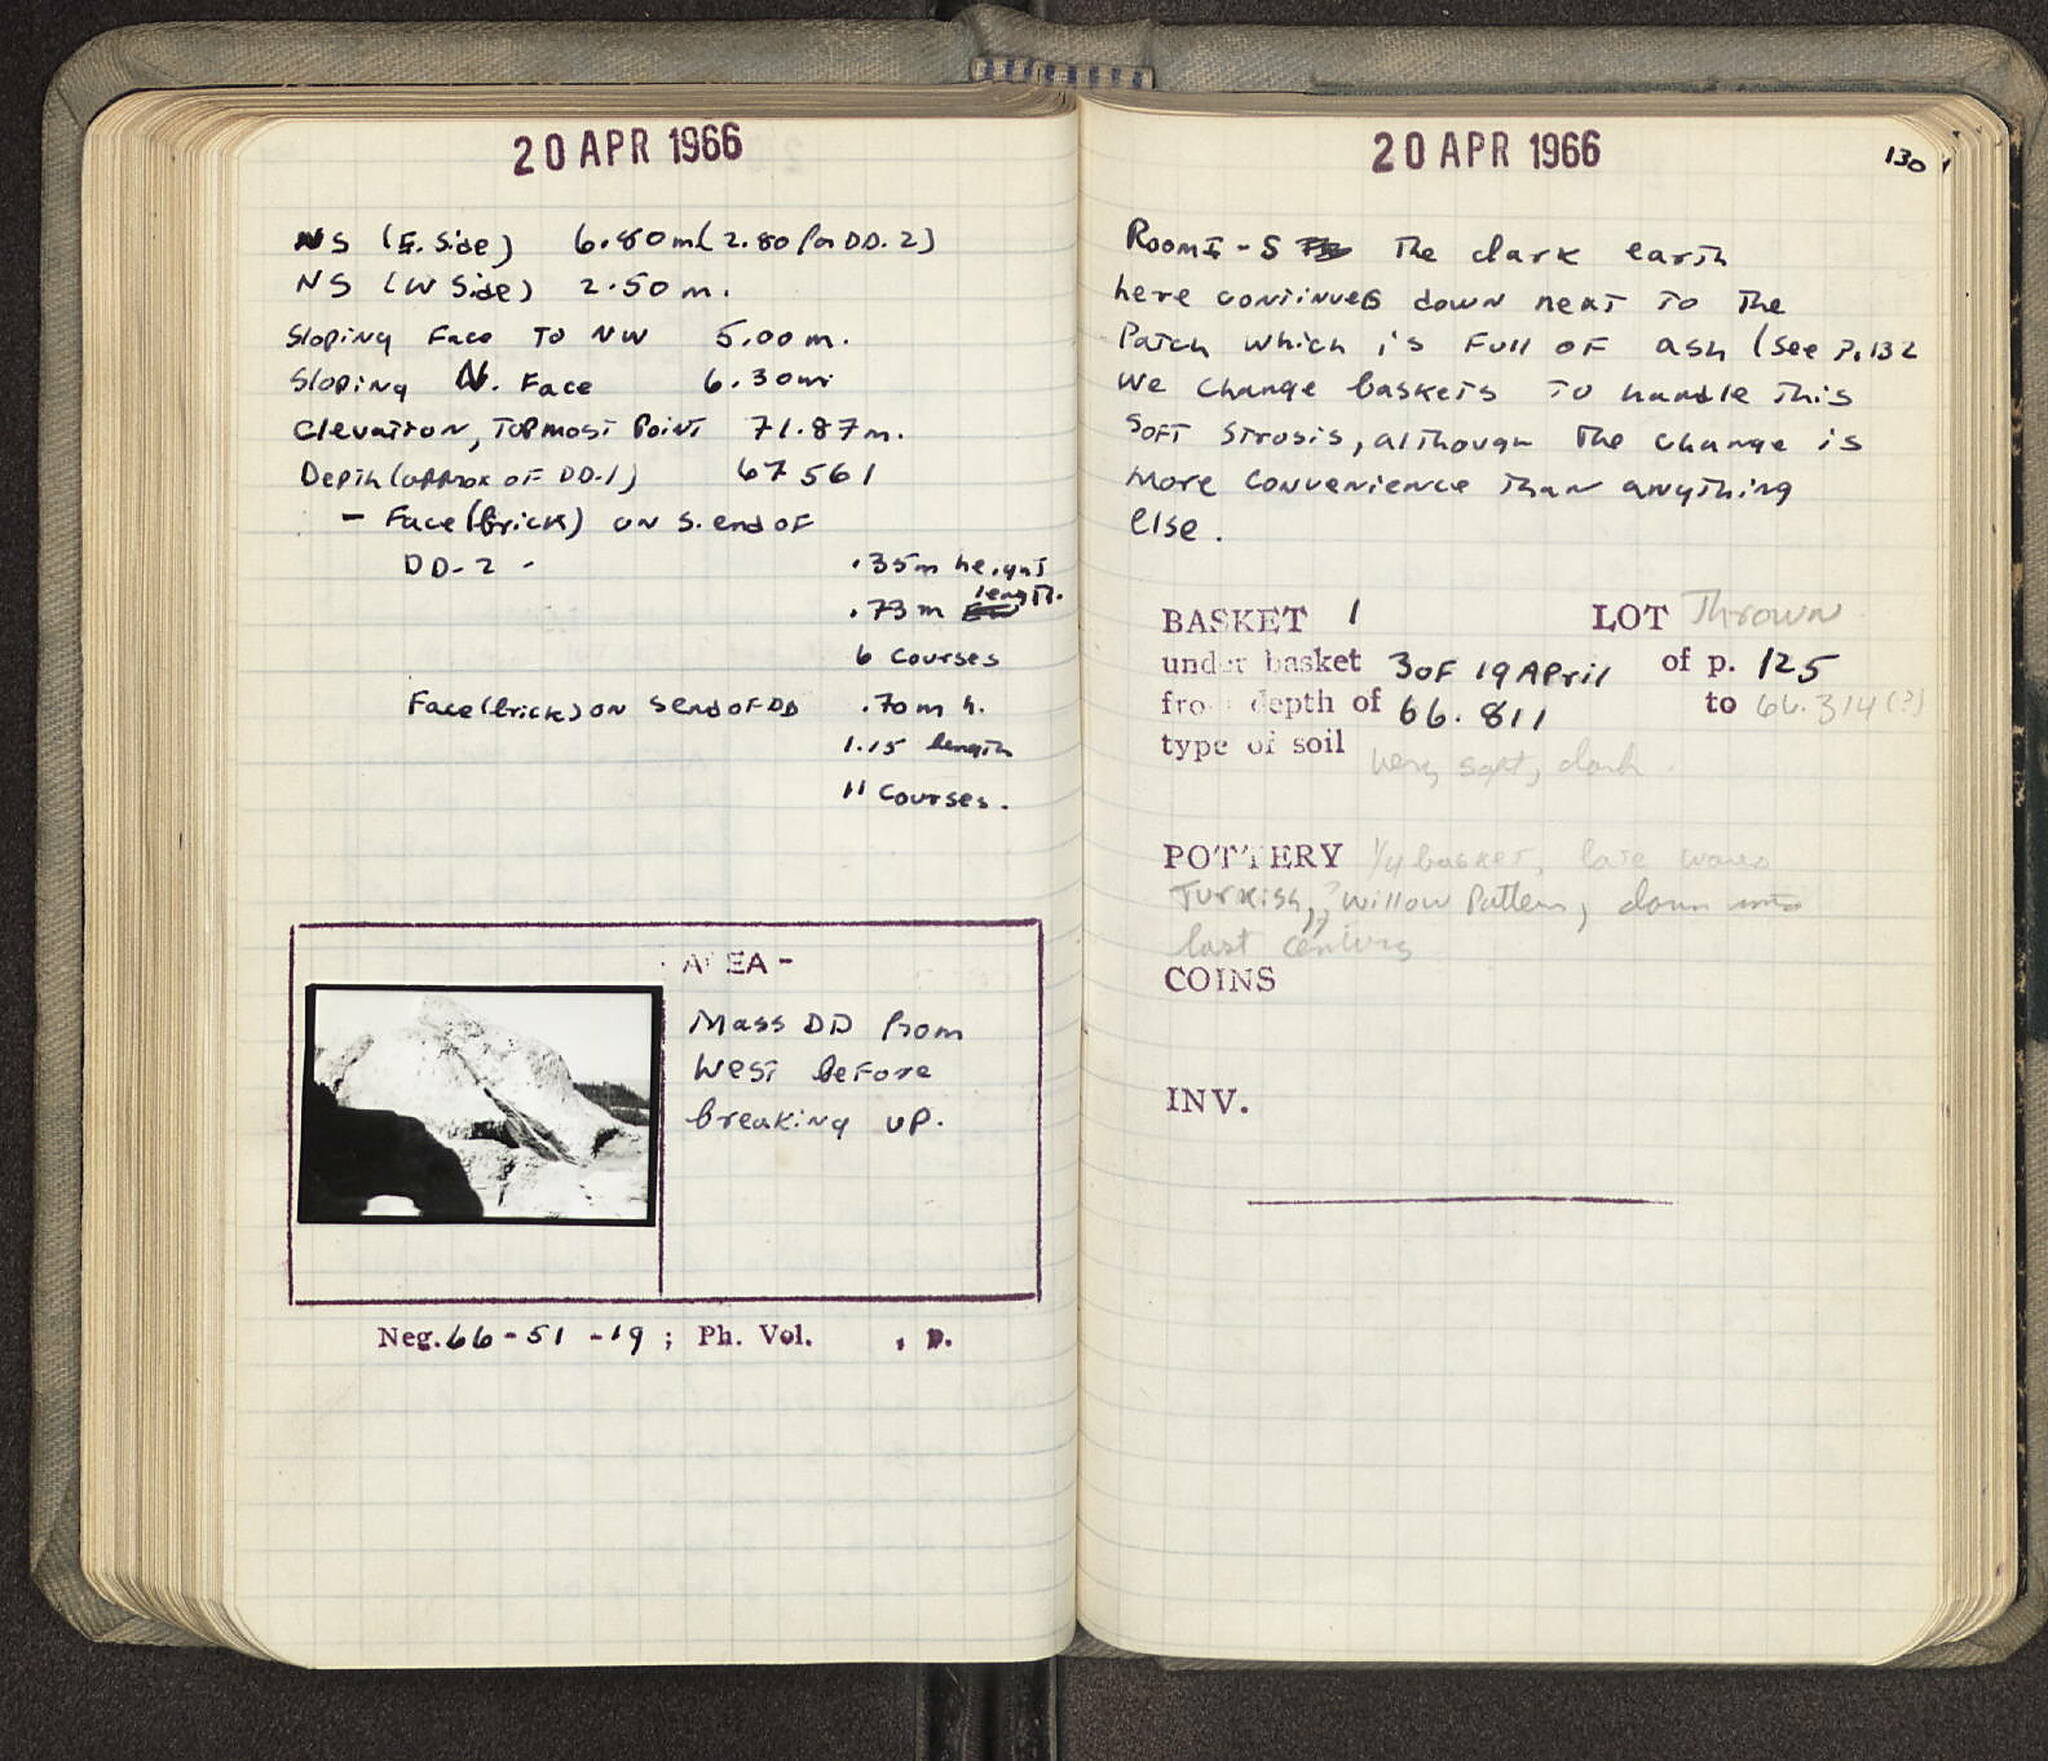 20 APR 1966
NS (E. Side) 6.80m (2.80 for DD.2)
NS (W Side) 2.50 m.
Sloping Face To NW 5.00 m.
Sloping N. Face 6.30m
Elevation, Topmost Point 71.87m.
Depth (approx of DD.1) 67 561
- Face (brick) on S. end of
DD-2 - .35m height
.73 m length.
6 Courses
Face (brick) on S end of DD .70 m h.
1.15 length
11 Courses.
AREA -
Mass DD from
West before
breaking up.
Neg. 66-51-19 ; Ph. Vol. , p.
20 APR 1966
130
Room I-S The dark earth
here continues down next to the
Patch which is full of ash (See P. 132
We change baskets to handle this
soft strosis, although the change is
more convenience than anything
else.
BASKET 1 LOT Thrown
under basket 3 of 19 April of p. 125
from depth of 66.811 to 66.314 (?)
type of soil very soft, dark.
POTTERY 1/4 basket, late wares
Turkish, ? Willow Pattern, down into
last century
COINS
INV.